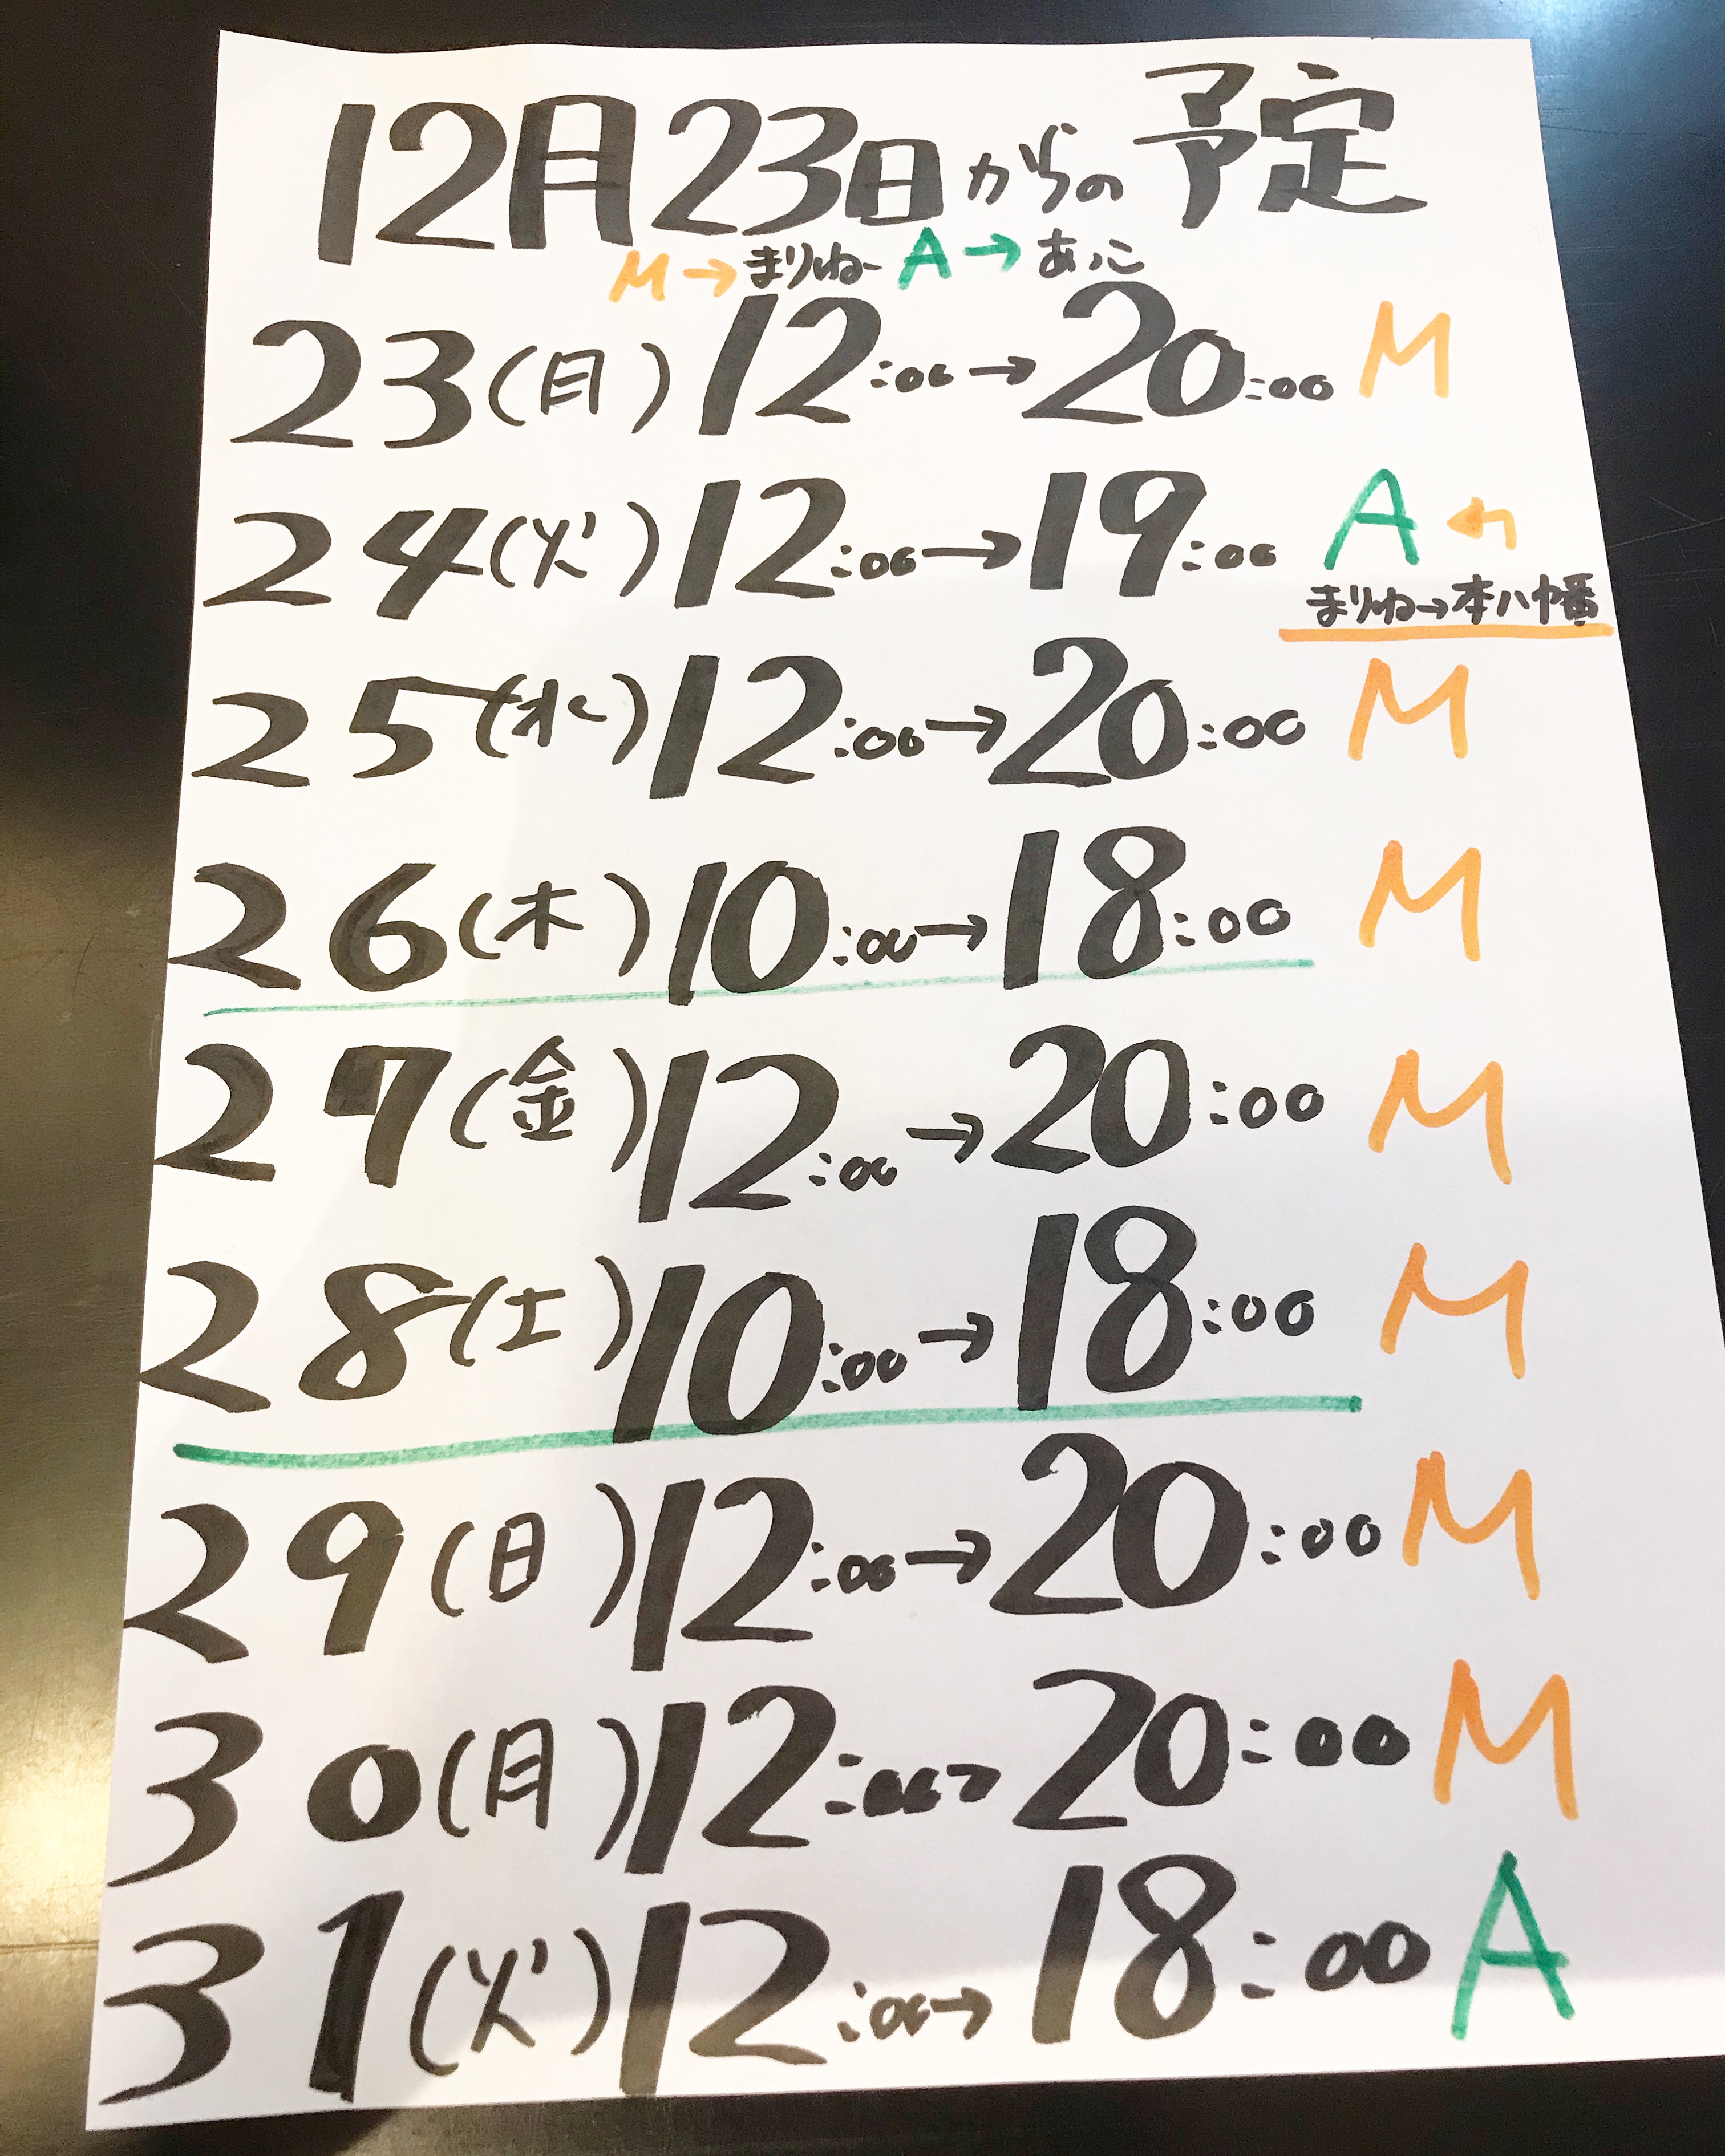 12月23日からの予定
M→まりねー A→あっこ
23(月) 12:00→20:00 M
24(火) 12:00→19:00 A
まりね→本八幡
25(水) 12:00→20:00 M
26(木) 10:00→18:00 M
27(金) 12:00→20:00 M
28(土) 10:00→18:00 M
29(日) 12:00→20:00 M
30(月) 12:00→20:00 M
31(火) 12:00→18:00 A